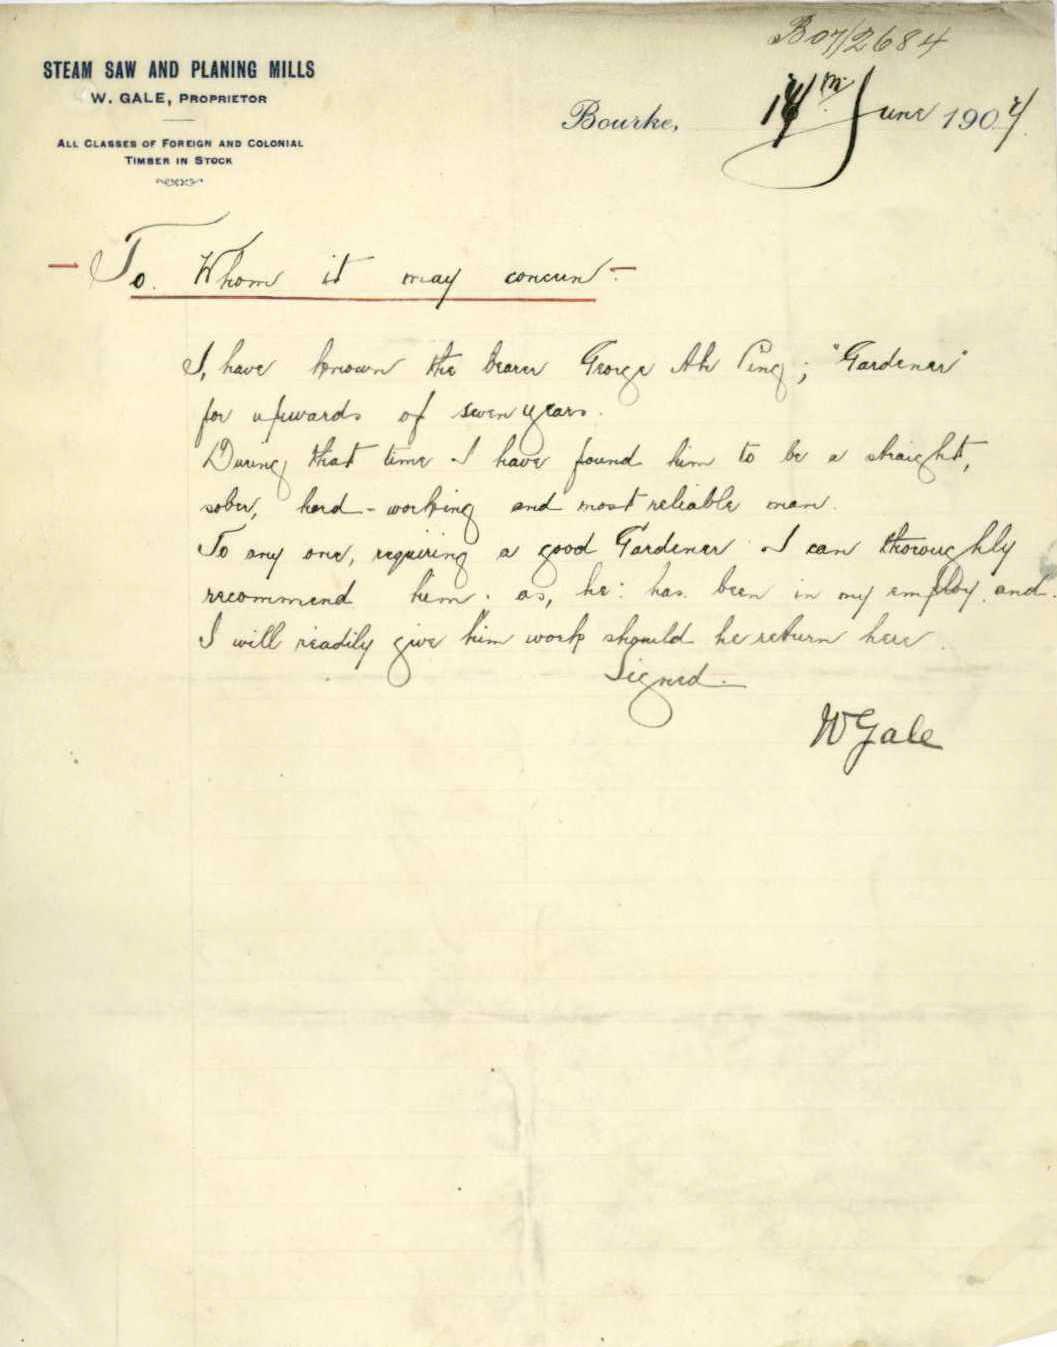 B07/2684
STEAM SAW AND PLANING MILLS
W. GALE, PROPRIETOR
ALL CLASSES OF FOREIGN AND COLONIAL
TIMBER IN STOCK
Bourke, 14th June 1907
To Whom it may concern
I, have known the bearer George Ah Ping; "Gardener"
for upwards of seven years.
During that time I have found him to be a straight,
sober, hard-working and most reliable man.
To any one, requiring a good Gardener I can thoroughly
recommend him. as, he: has been in my employ. and.
I will readily give him work should he return here.
Signed.
W Gale